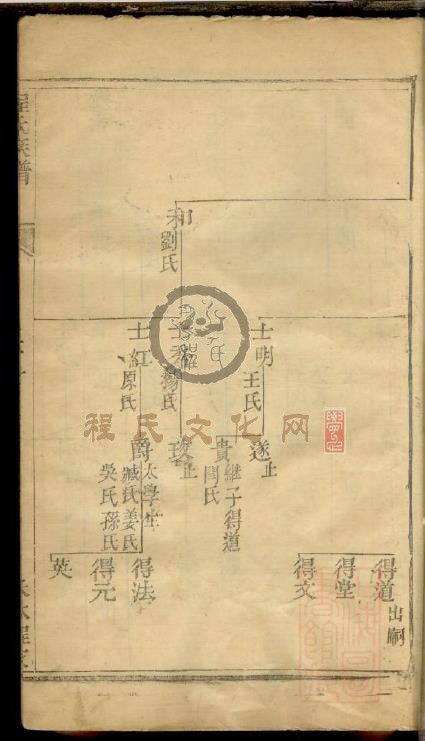 和
劉氏
士明
王氏
士耀
楊氏
士紅
原氏
遂
止
貴
繼子得道
閆氏
止
爵
太學生
臧氏姜氏
吳氏孫氏
得道
出嗣
得堂
得文
得法
得元
英
程氏族譜
程氏文化网